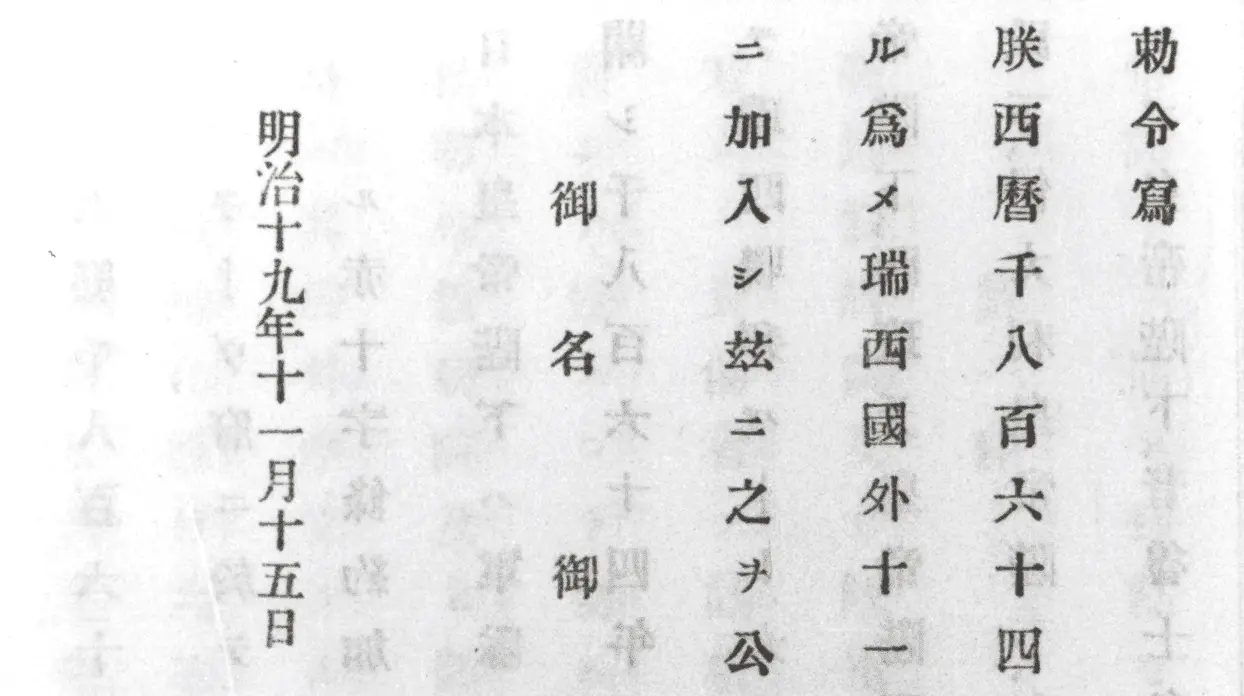 勅令寫
朕西曆千八百六十四
ル爲メ瑞西國外十一
ニ加入シ玆ニ之ヲ公
御名御
明治十九年十一月十五日